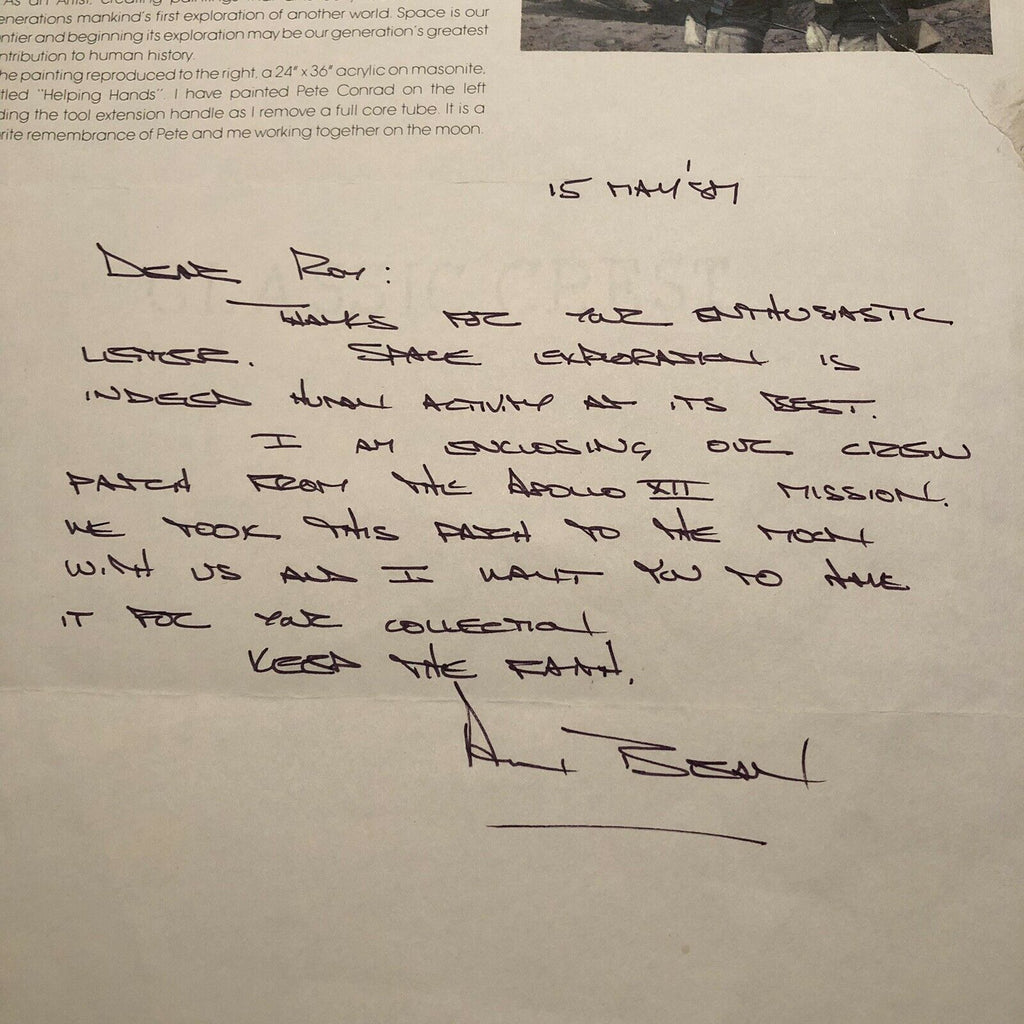 enerations mankind's first exploration of another world. Space is our
ntier and beginning its exploration may be our generation's greatest
ntribution to human history.
he painting reproduced to the right, a 24" x 36" acrylic on masonite,
tled "Helping Hands". I have painted Pete Conrad on the left
ding the tool extension handle as I remove a full core tube. It is a
rite remembrance of Pete and me working together on the moon.
15 MAY
DEAR ROY:
THANKS FOR YOUR ENTHUSIASTIC
LETTER. SPACE EXPLORATION IS
INDEED HUMAN ACTIVITY AT ITS BEST.
I AM ENCLOSING OUR CREW
PATCH FROM THE APOLLO XII MISSION.
WE TOOK THIS PATCH TO THE MOON
WITH US AND I WANT YOU TO HAVE
IT FOR YOUR COLLECTION
KEEP THE FAITH.
ALAN BEAN